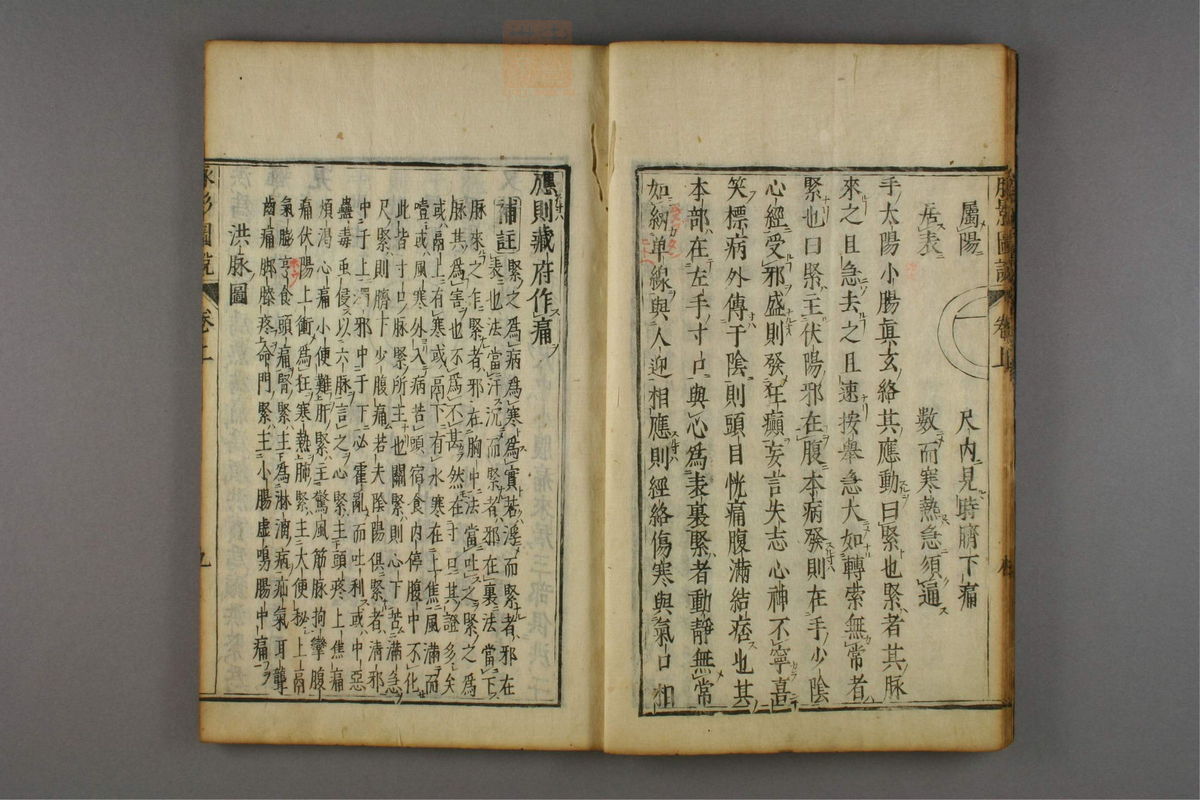 屬陽 尺内見時臍下痛
居表 數而寒熱急須通
手太陽小腸眞玄絡其應動曰緊也緊者其脉
來之且急去之且速按舉急大如轉索無常者
緊也曰緊主伏陽邪在腹本病發則在手少陰
心經受邪盛則發狂癲妄言失志心神不寧喜
笑標病外傳于陰則頭目恍痛腹滿結痞也其
本部在左手寸口與心爲表裏緊者動靜無常
如紉单線與人迎相應則經絡傷寒與氣口相
應則藏府作痛
補註 緊之爲病爲寒爲實若浮而緊者邪在
表也法當汗沉而緊者邪在裏法當下
脉來之作緊者邪在胸中法當吐之緊之爲
脉其爲害也不爲不甚然在寸口其證多矣
或鬲上有寒或鬲下有水寒在上焦風滿而
噎或風寒外入病苦頭宿食内停腹中不化
此皆寸口脉緊所主也關緊則心下苦滿急
尺緊則臍下少腹痛若夫陰陽俱緊者清邪
中于上濁邪中于下必霍亂而吐利或中惡
蠱毒重侵以六脉言之心緊主頭疼上焦痛
煩渴心痛小便難肝緊主驚風筋脉拘攣腹
痛伏陽上衝爲狂寒熱肺緊主大便秘上鬲
氣脇亨食頭痛腎緊主爲淋瀝病疝氣耳聾
齒痛脚膝疼命門緊主小腸虛鳴腸中痛
洪脉圖
脉影圖説 卷上 九